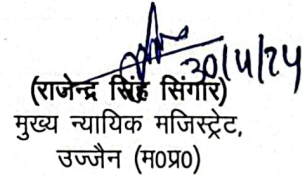 30/4/24
(राजेन्द्र सिंह सिंगार)
मुख्य न्यायिक मजिस्ट्रेट,
उज्जैन (म0प्र0)